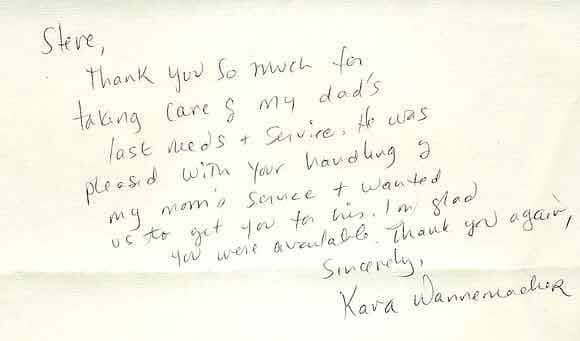 Steve,
Thank you so much for
taking care of my dad's
last needs + service. He was
pleased with your handling of
my mom's service + wanted
us to get you for his. I'm glad
you were available. Thank you again,
Sincerely,
Kara Wannemacher